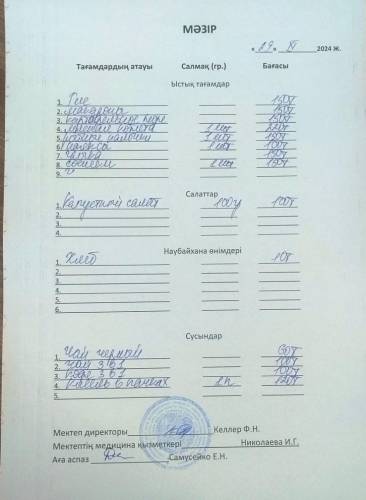 МӘЗІР
« 19 » XI 2024 ж.
Тағамдардың атауы Салмақ (гр.) Бағасы
Ыстық тағамдар
1. 150т
2. макароны 150т
3. картофельное пюре 150т
4. котлета 1 шт 220т
5. 1 шт 150т
6. 1 шт 100т
7. 150т
8. 1 шт 150т
9.
Салаттар
1. Капустный салат 100г 100т
2.
3.
4.
Наубайхана өнімдері
1. Хлеб 10т
2.
3.
4.
5.
6.
Сусындар
1. Чай черный 60т
2. Чай 3в1 100т
3. Кофе 3в1 100т
4. Кисель в пачках 1п 120т
5.
Мектеп директоры Келлер Ф.Н.
Мектептің медицина қызметкері Николаева И.Г.
Аға аспаз Самусейко Е.Н.